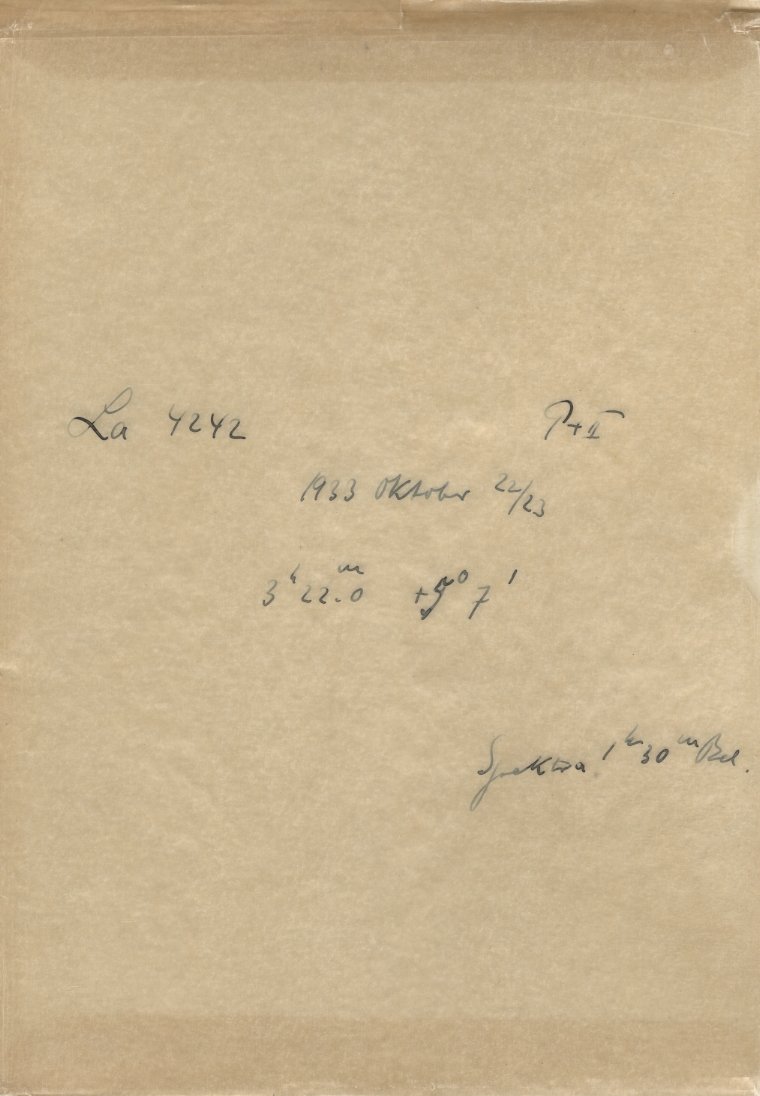 La 4242 P+II
1933 Oktober 22/23
3ʰ22.0ᵐ +5° 7'
Spektra 1ʰ30ᵐ Bel.